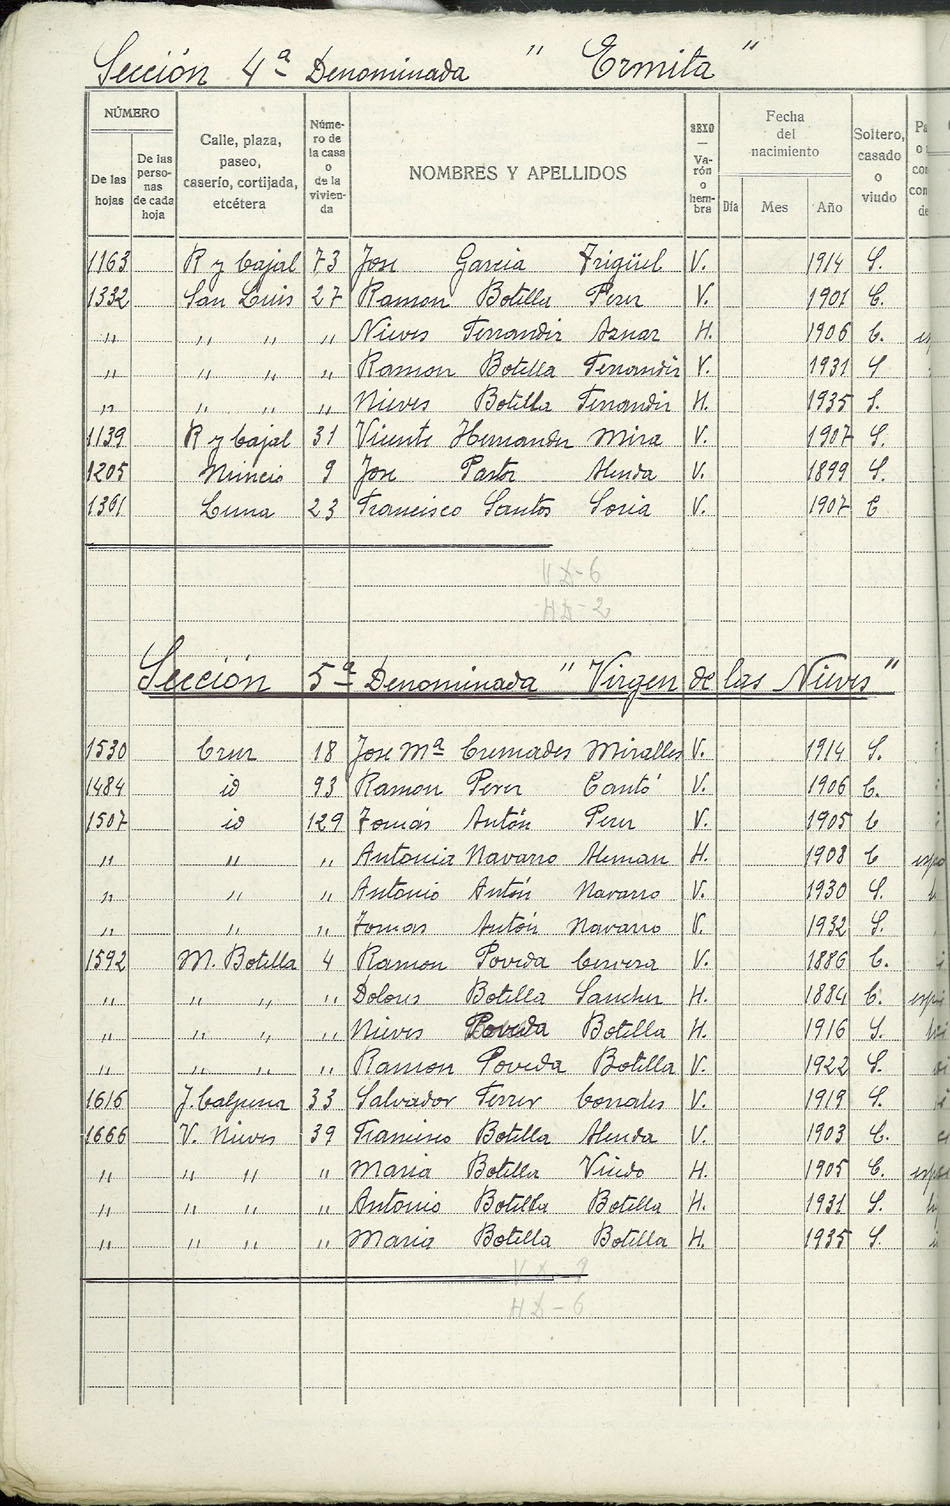 Sección 4ª Denominada " Ermita "
NÚMERO
De las hojas
De las perso- nas de cada hoja
Calle, plaza, paseo, caserío, cortijada, etcétera
Núme- ro de la casa o de la vivien- da
NOMBRES Y APELLIDOS
SEXO — Va- rón o hem- bra
Fecha del nacimiento
Día
Mes
Año
Soltero, casado o viudo
1163 R y Cajal 73 Jose Garcia Frigüel V. 1914 S.
1332 San Luis 27 Ramon Botella Perez V. 1901 C.
" " " " Nieves Ferrandiz Aznar H. 1906 C.
" " " " Ramon Botella Ferrandiz V. 1931 S
" " " " Nieves Botella Ferrandiz H. 1935 S.
1139 R y Cajal 31 Vicente Hernandez Mira V. 1907 S.
1205 Nuncio 9 Jose Pastor Alenda V. 1899 S.
1361 Luna 23 Francisco Santos Soria V. 1907 C
V D - 6
H D - 2
Sección 5ª Denominada " Virgen de las Nieves "
1530 Cruz 18 Jose Mª Cremades Miralles V. 1914 S.
1484 id 93 Ramon Perez Cantó V. 1906 C.
1507 id 129 Tomás Antón Perez V. 1905 C
" " " Antonia Navarro Aleman H. 1908 C
" " " Antonio Antón Navarro V. 1930 S.
" " " Tomas Antón Navarro V. 1932 S.
1592 M. Botella 4 Ramon Poveda Cervera V. 1886 C.
" " " " Dolores Botella Sanchez H. 1884 C.
" " " " Nieves Poveda Botella H. 1916 S.
" " " " Ramon Poveda Botella V. 1922 S.
1616 J. Calpena 33 Salvador Ferrer Corrales V. 1919 S.
1666 V. Nieves 39 Francisco Botella Alenda V. 1903 C.
" " " " Maria Botella Viudo H. 1905 C.
" " " " Antonio Botella Botella H. 1931 S.
" " " " Maria Botella Botella H. 1935 S.
V D - 9
H D - 6